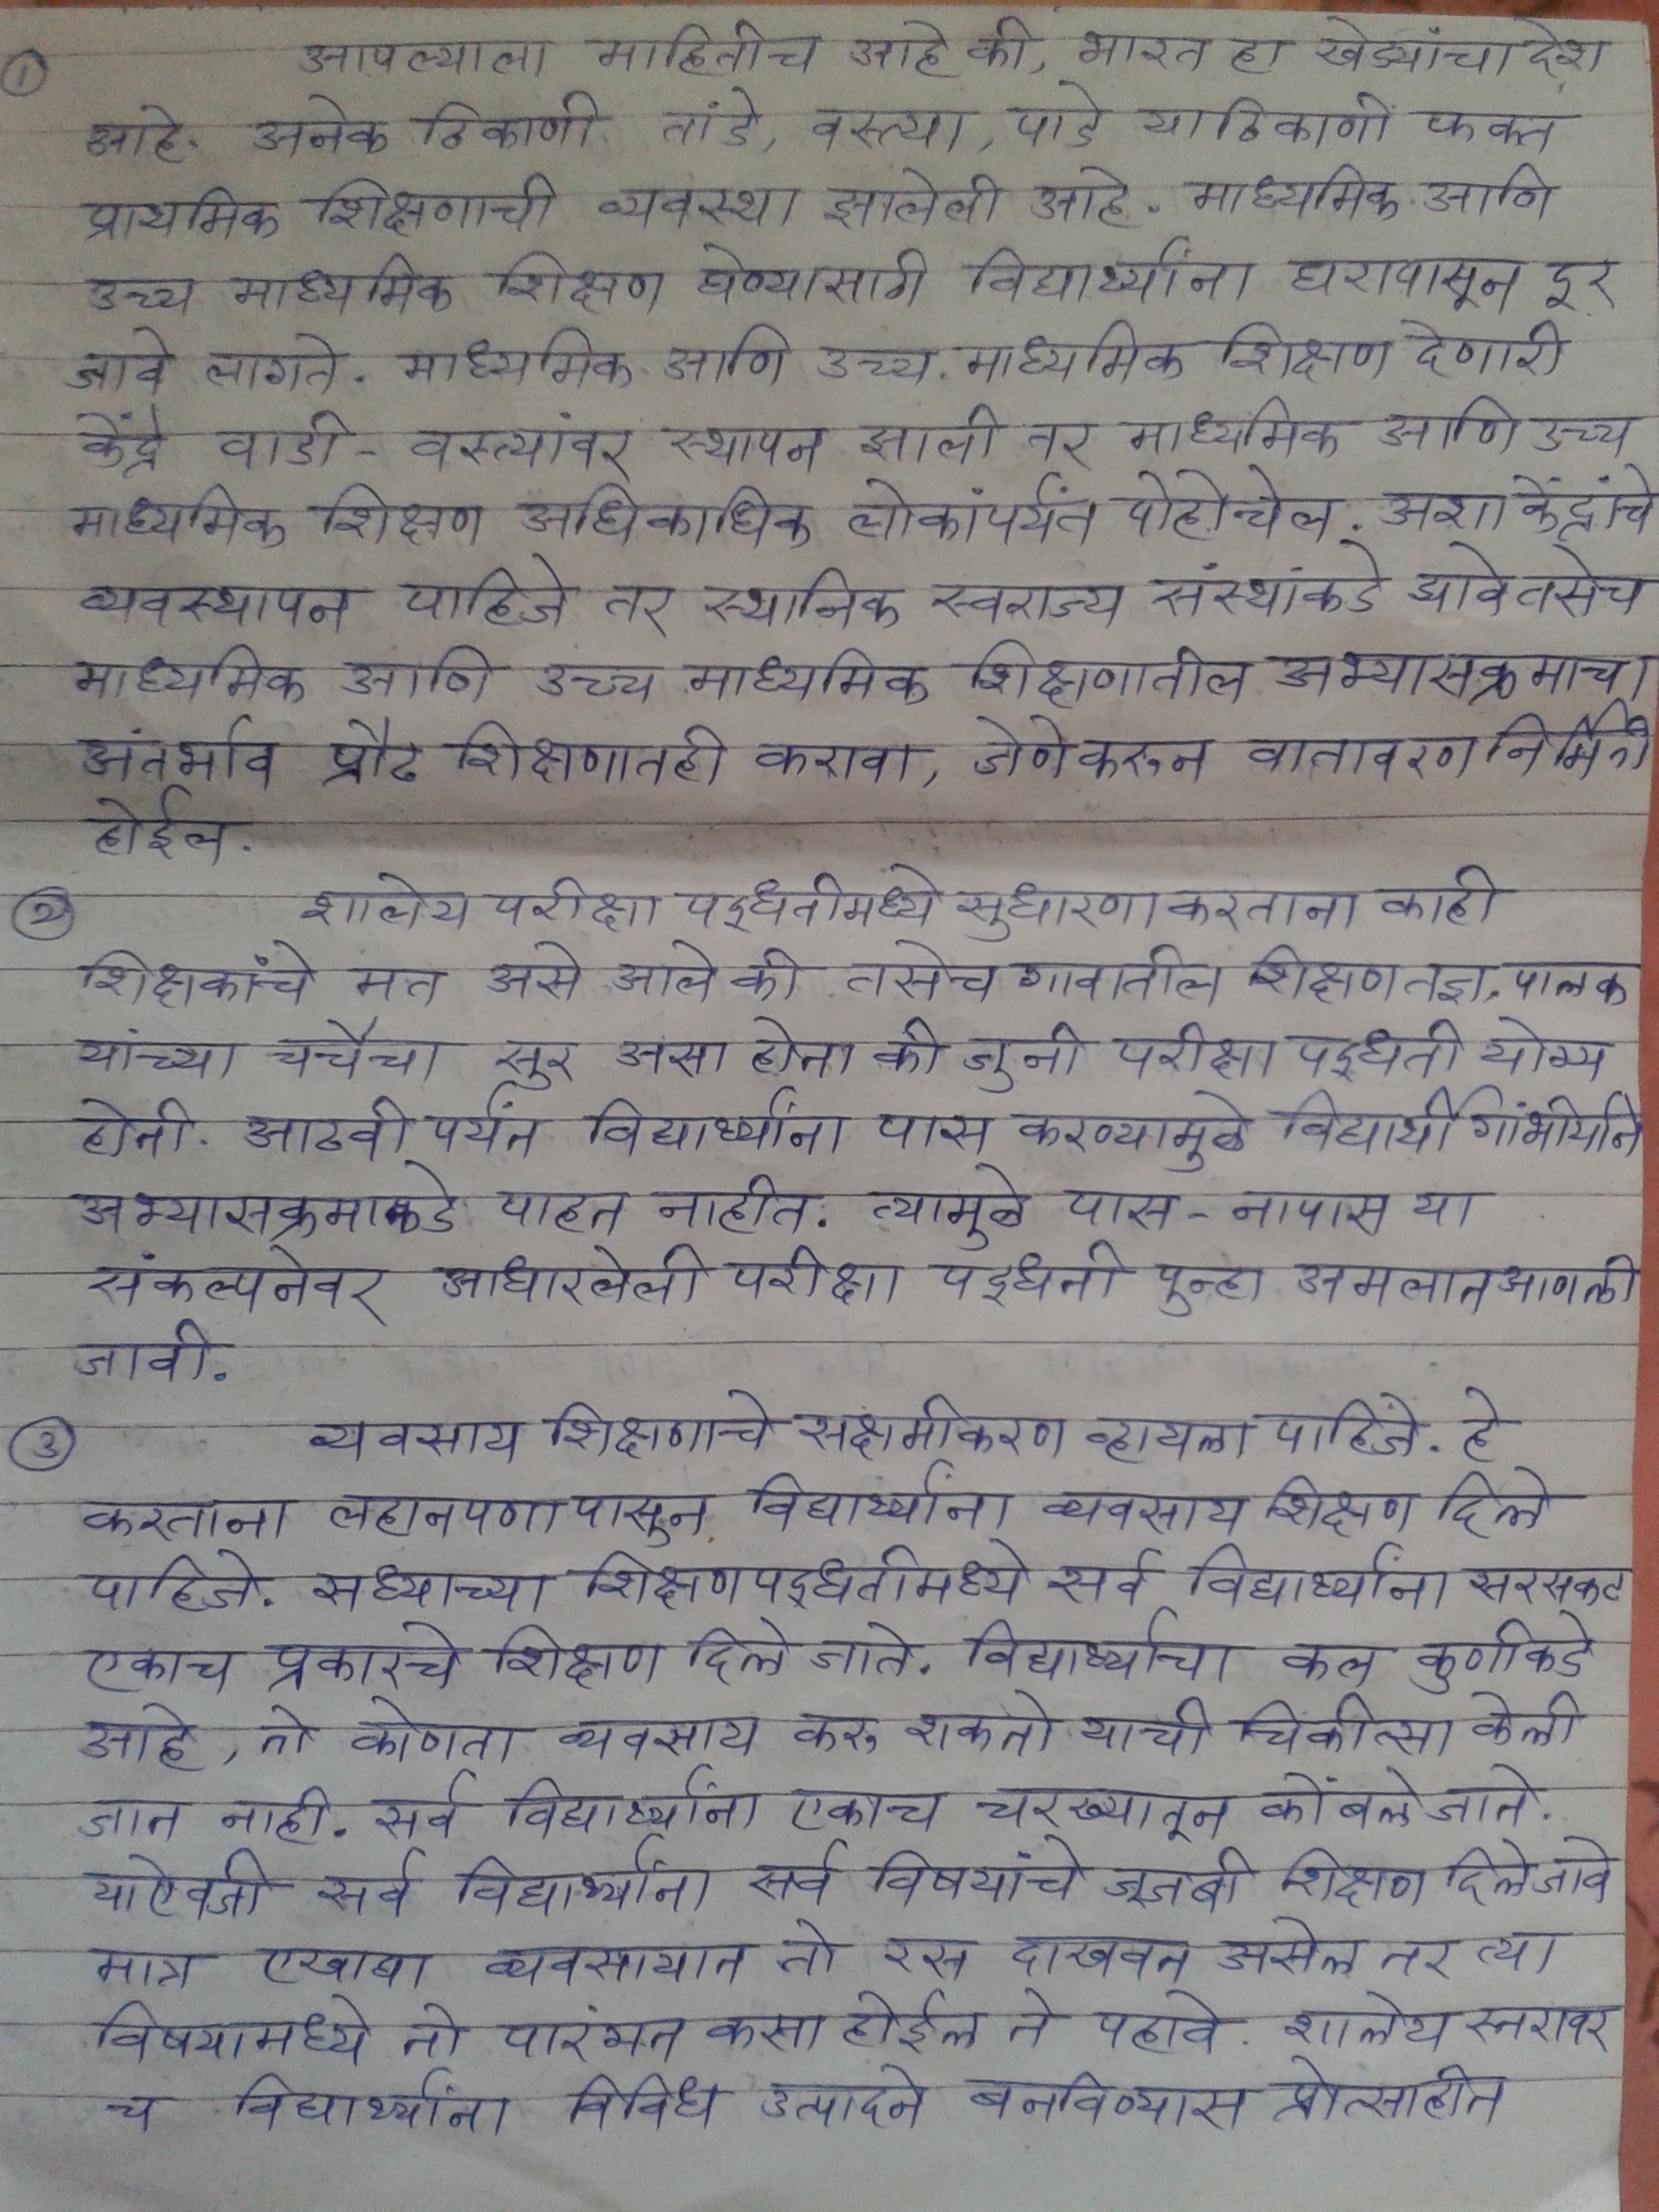 ① आपल्याला माहितीच आहे की, भारत हा खेड्यांचा देश
आहे. अनेक ठिकाणी तांडे, वस्त्या, पाडे याठिकाणी फक्त
प्राथमिक शिक्षणाची व्यवस्था झालेली आहे. माध्यमिक आणि
उच्च माध्यमिक शिक्षण घेण्यासाठी विद्यार्थ्यांना घरापासून दूर
जावे लागते. माध्यमिक आणि उच्च माध्यमिक शिक्षण देणारी
केंद्रे वाडी - वस्त्यांवर स्थापन झाली तर माध्यमिक आणि उच्च
माध्यमिक शिक्षण अधिकाधिक लोकांपर्यंत पोहोचेल. अशा केंद्रांचे
व्यवस्थापन पाहिजे तर स्थानिक स्वराज्य संस्थांकडे द्यावे तसेच
माध्यमिक आणि उच्च माध्यमिक शिक्षणातील अभ्यासक्रमाचा
अंतर्भाव प्रौढ शिक्षणातही करावा, जेणेकरून वातावरण निर्मिती
होईल.
② शालेय परीक्षा पद्धतीमध्ये सुधारणा करताना काही
शिक्षकांचे मत असे आले की तसेच गावातील शिक्षणतज्ञ, पालक
यांच्या चर्चेचा सुर असा होता की जुनी परीक्षा पद्धती योग्य
होती. आठवी पर्यंत विद्यार्थ्यांना पास करण्यामुळे विद्यार्थी गांभीर्याने
अभ्यासक्रमाकडे पाहत नाहीत. त्यामुळे पास - नापास या
संकल्पनेवर आधारलेली परीक्षा पद्धती पुन्हा अमलात आणली
जावी.
③ व्यवसाय शिक्षणाचे सक्षमीकरण व्हायला पाहिजे. हे
करताना लहानपणापासुन विद्यार्थ्यांना व्यवसाय शिक्षण दिले
पाहिजे. सध्याच्या शिक्षणपद्धतीमध्ये सर्व विद्यार्थ्यांना सरसकट
एकाच प्रकारचे शिक्षण दिले जाते. विद्यार्थ्यांचा कल कुणीकडे
आहे, तो कोणता व्यवसाय करु शकतो याची चिकीत्सा केली
जात नाही. सर्व विद्यार्थ्यांना एकाच चरख्यातून कोंबले जाते.
याऐवजी सर्व विद्यार्थ्यांना सर्व विषयांचे जूजबी शिक्षण दिले जावे
मात्र एखाद्या व्यवसायात तो रस दाखवत असेल तर त्या
विषयामध्ये तो पारंगत कसा होईल ते पहावे. शालेय स्तरावर
च विद्यार्थ्यांना विविध उत्पादने बनविण्यास प्रोत्साहीत